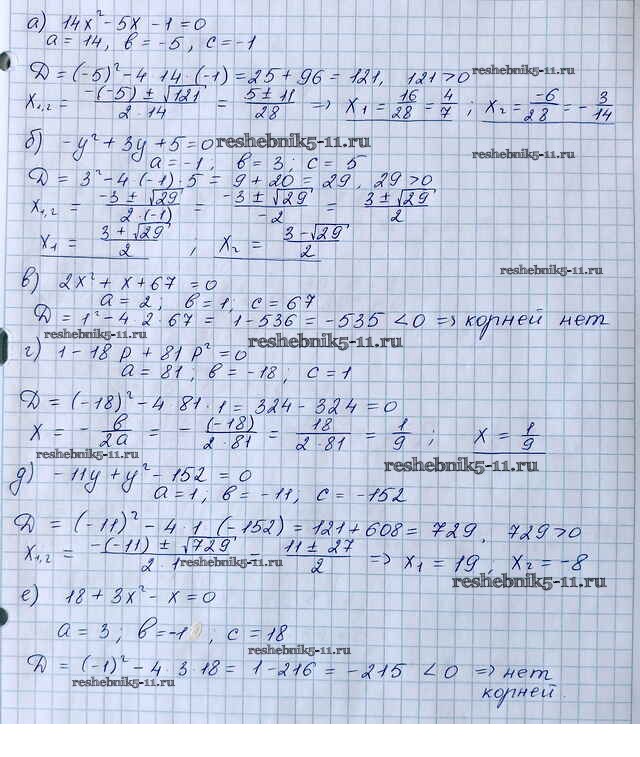 а) 14x² - 5x - 1 = 0
a = 14, b = -5, c = -1
D = (-5)² - 4·14·(-1) = 25 + 96 = 121, 121 > 0
reshebnik5-11.ru
x₁,₂ = (-(-5) ± √121)/(2·14) = (5 ± 11)/28 => x₁ = 16/28 = 4/7 ; x₂ = -6/28 = -3/14
б) -y² + 3y + 5 = 0 reshebnik5-11.ru
a = -1, b = 3; c = 5 reshebnik5-11.ru
D = 3² - 4·(-1)·5 = 9 + 20 = 29, 29 > 0
x₁,₂ = (-3 ± √29)/(2·(-1)) = (-3 ± √29)/(-2) = (3 ± √29)/2
x₁ = (3 + √29)/2 , x₂ = (3 - √29)/2
reshebnik5-11.ru
в) 2x² + x + 67 = 0
a = 2; b = 1; c = 67
D = 1² - 4·2·67 = 1 - 536 = -535 < 0 => корней нет
reshebnik5-11.ru reshebnik5-11.ru
г) 1 - 18p + 81p² = 0
a = 81, b = -18; c = 1
D = (-18)² - 4·81·1 = 324 - 324 = 0
x = -b/2a = -(-18)/(2·81) = 18/(2·81) = 1/9 ; x = 1/9
reshebnik5-11.ru reshebnik5-11.ru
д) -11y + y² - 152 = 0
a = 1, b = -11, c = -152
D = (-11)² - 4·1·(-152) = 121 + 608 = 729, 729 > 0
x₁,₂ = (-(-11) ± √729)/(2·1) = (11 ± 27)/2 => x₁ = 19, x₂ = -8
reshebnik5-11.ru reshebnik5-11.ru
е) 18 + 3x² - x = 0
a = 3; b = -1, c = 18
reshebnik5-11.ru
D = (-1)² - 4·3·18 = 1 - 216 = -215 < 0 => нет
reshebnik5-11.ru корней.